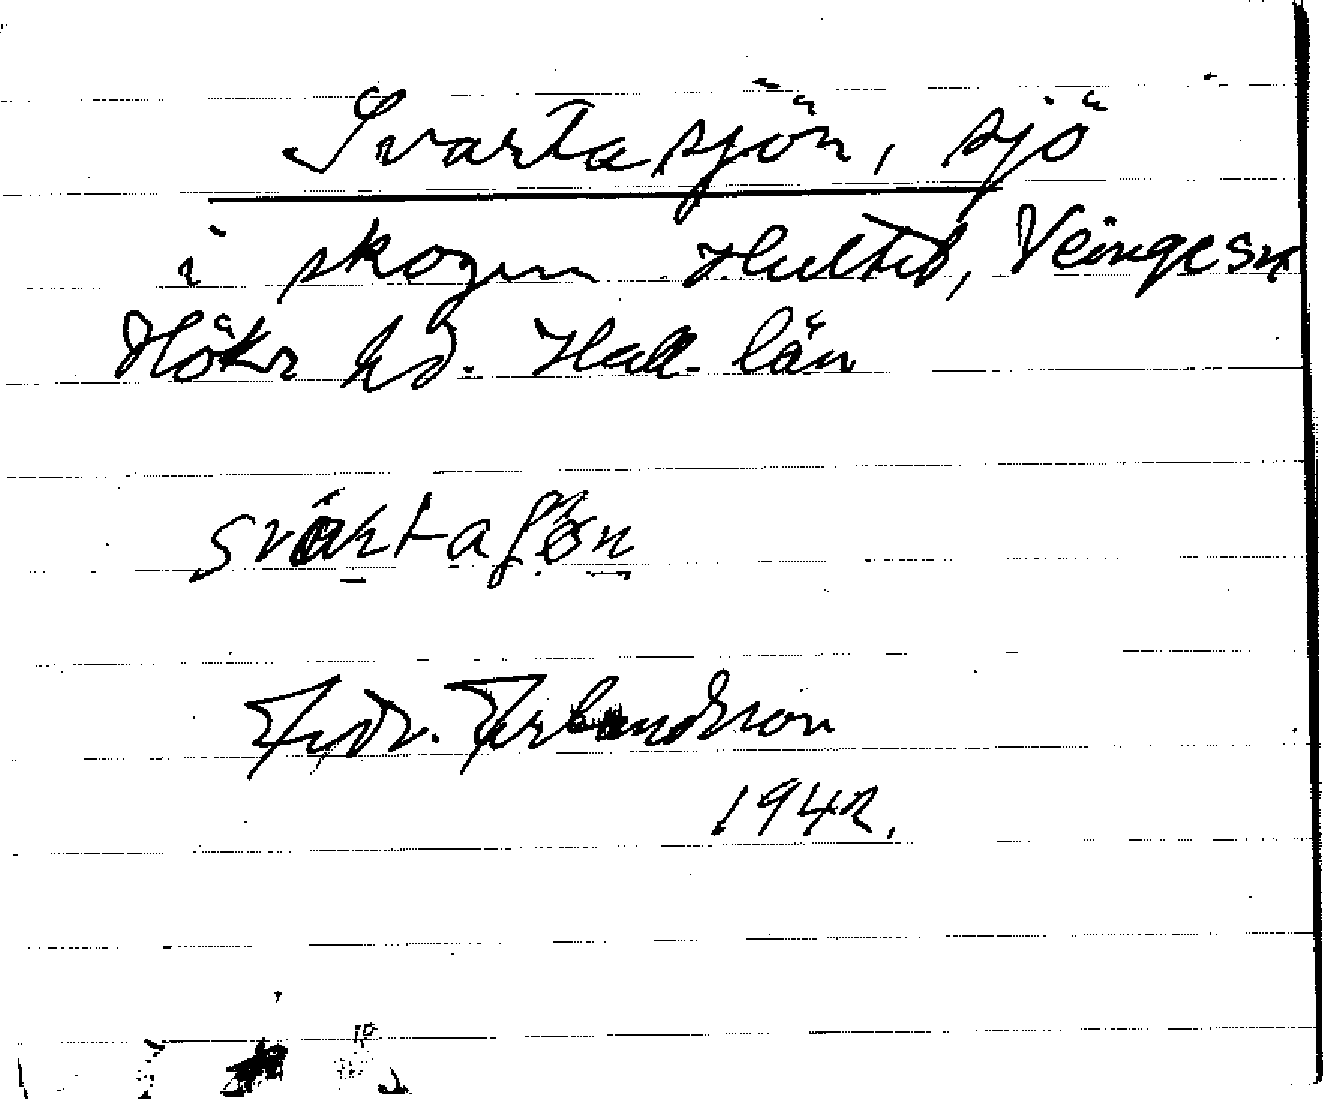 Svartasjön, sjö
i skogen Hultet, Veinge sn
Höks hd. Hall. län
svàrtaʃön
Fredr. Erlandsson
1942.